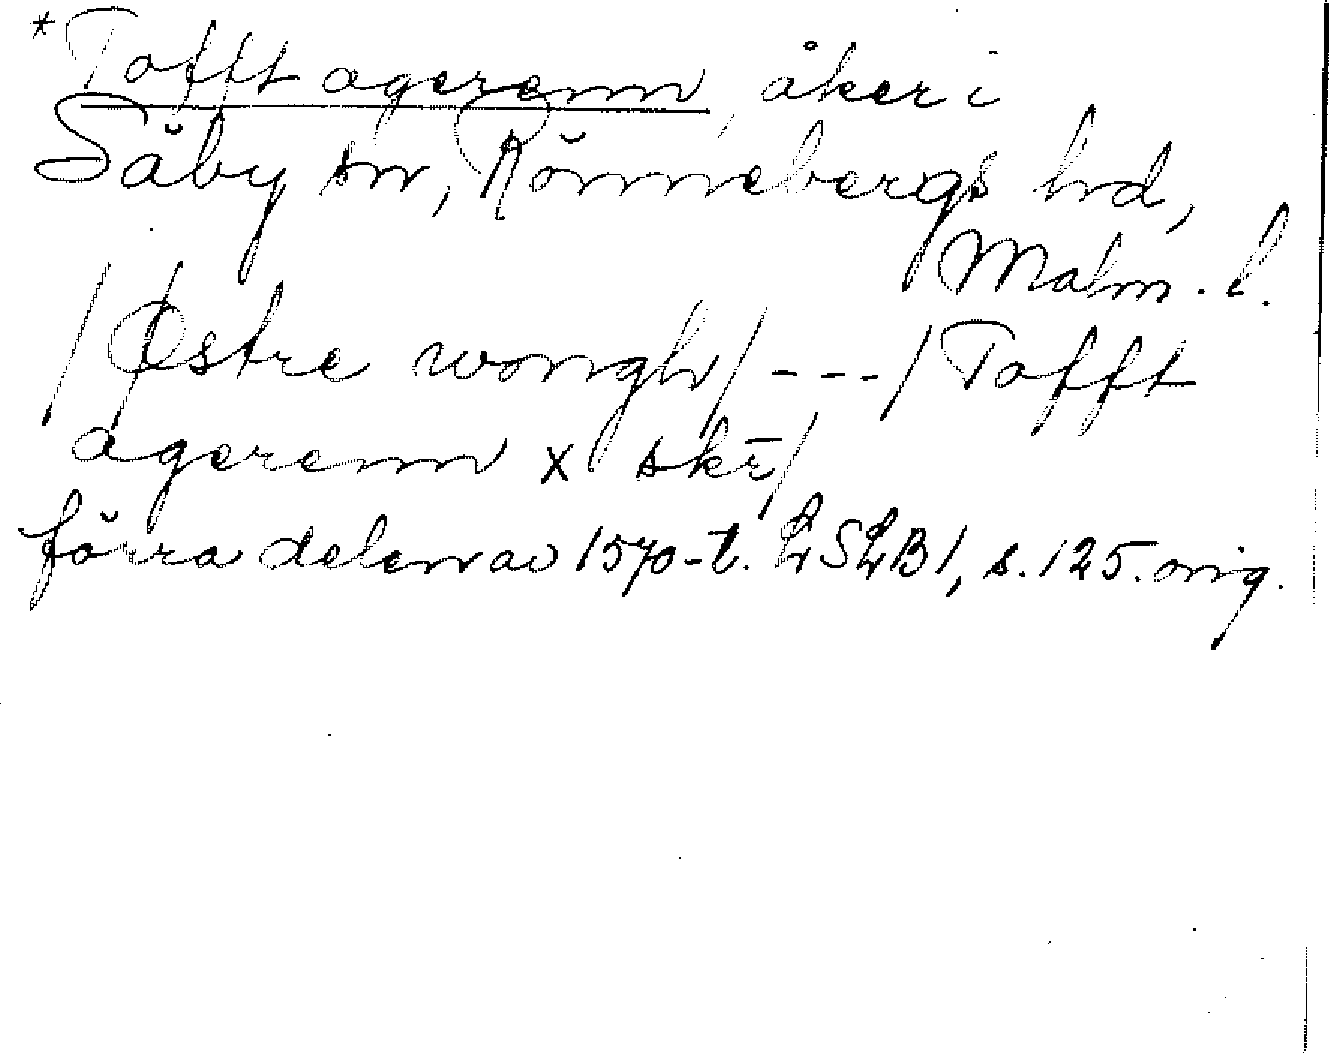 *Tofft agerenn, åker i
Säby sn, Rönnebergs hd,
Malm. l.
/Østre wongh/ - - - / Tofft
agerenn x skr̄/
förra delen av 1570-t. LSLB1, s. 125. orig.